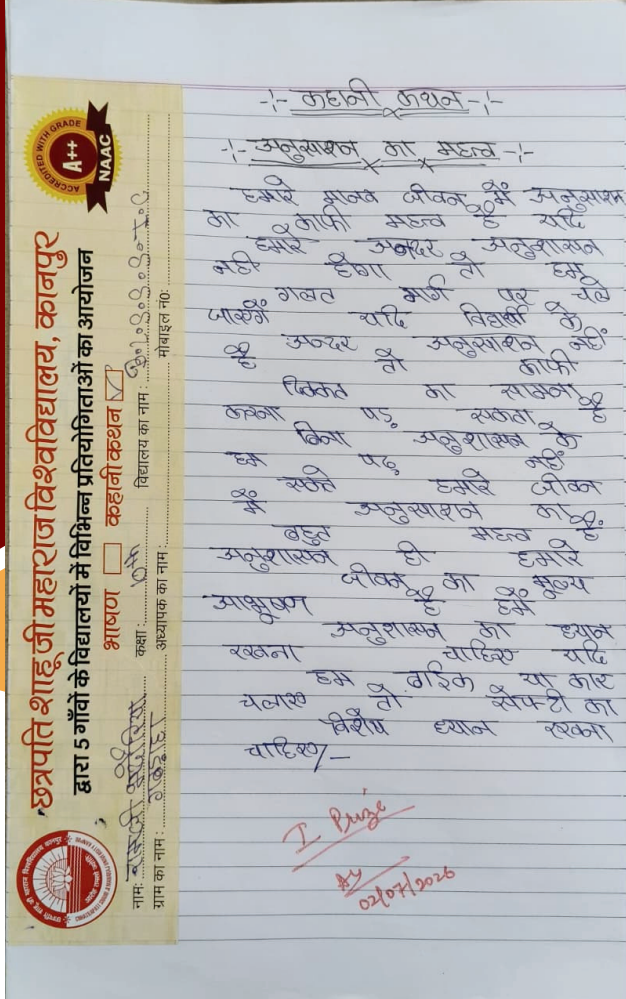 छत्रपति शाहू जी महाराज विश्वविद्यालय, कानपुर
द्वारा 5 गाँवों के विद्यालयों में विभिन्न प्रतियोगिताओं का आयोजन
भाषण कहानी कथन
नाम: कक्षा : 10th विद्यालय का नाम :
ग्राम का नाम : अध्यापक का नाम: मोबाइल नं0:
ACCREDITED WITH GRADE
A++
NAAC
-:- कहानी कथन -:-
-:- अनुसाशन का महत्व -:-
हमारे मानव जीवन में अनुसाशन
का काफी महत्व है यदि
हमारे अन्दर अनुशासन
नही होगा तो हम
गलत मार्ग पर चले
जाएगें यदि विद्यार्थी के
अन्दर अनुसाशन नहीं
है तो काफी
दिक्कत का सामना
करना पड़ सकता है
बिना अनुशासन के
हम पढ़ नहीं
सकते हमारे जीवन
में अनुसाशन का
बहुत महत्व है
अनुशासन ही हमारे
जीवन का मुख्य
आभूषण है हमें
अनुशासन का ध्यान
रखना चाहिए यदि
हम बाईक या कार
चलाए तो सेफ्टी का
विशेष ध्यान रखना
चाहिए/-
I Prize
02/07/2026